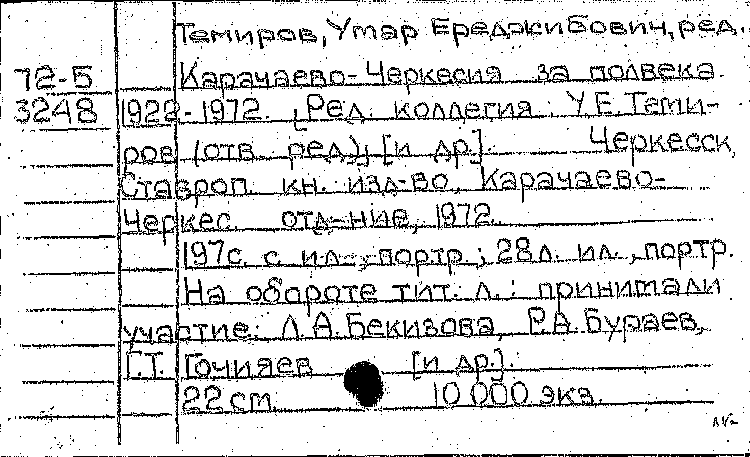 Темиров, Умар Ереджибович, ред.
72-5 Карачаево-Черкесия за полвека.
3248 1922-1972. [Ред. коллегия: У.Е.Теми-
ров (отв. ред.), [и др.]. Черкесск,
Ставроп. кн. изд-во, Карачаево-
Черкес. отд-ние, 1972.
197с. с ил., портр.; 28л. ил., портр.
На обороте тит. л.: принимали
участие: Л.А.Бекизова, Р.А.Бураев,
Г.Т. Гочияев [и др.].
22 cm. 10 000 экз.